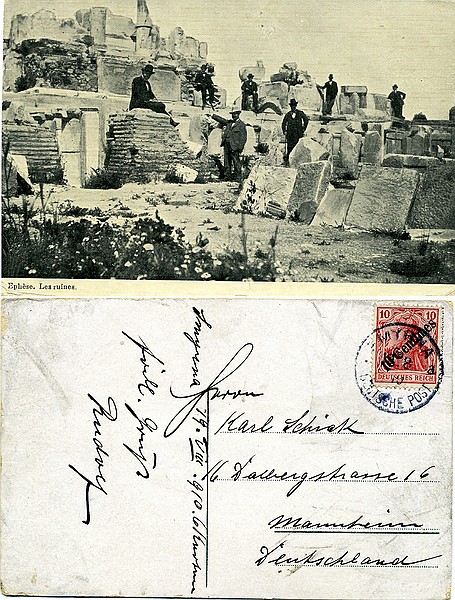 Ephèse. Les ruines.
frdl. Gruß
Rudolf
Smyrna 19. VIII. 910.
10 10
10 Centimes
DEUTSCHES REICH
SMYRNA
DEUTSCHE POST
a
Herrn
Karl Schick
Dalbergstrasse 16
Mannheim
Deutschland